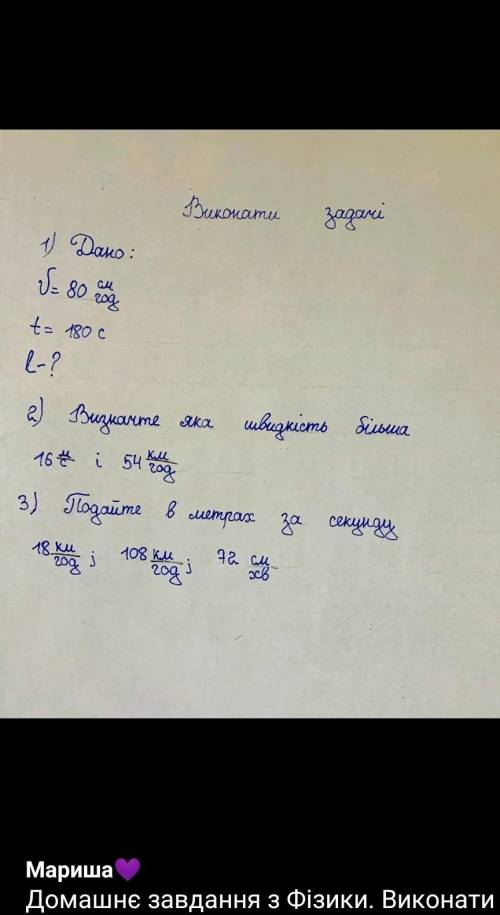 Виконати задачі
1) Дано:
V= 80 см/год
t= 180 с
l-?
2) Визначте яка швидкість більша
16 м/с і 54 км/год
3) Подайте в метрах за секунду
18 км/год; 108 км/год; 72 см/хв
Мариша💜
Домашнє завдання з Фізики. Виконати